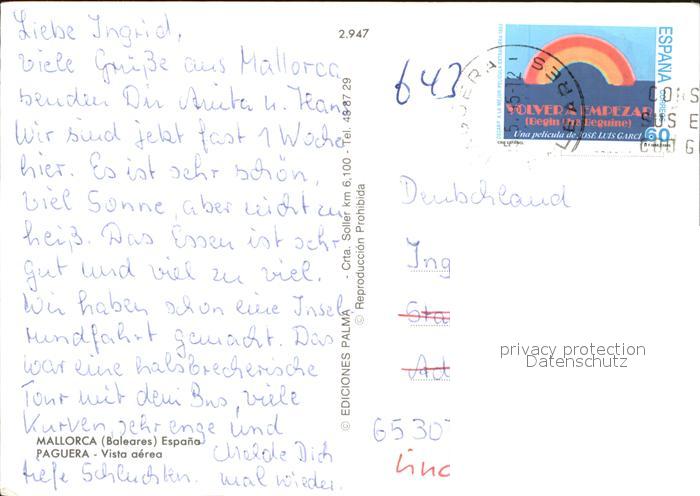 Liebe Ingrid,
viele Grüße aus Mallorca
senden Dir Anita u. Hans
Wir sind jetzt fast 1 Woche
hier. Es ist sehr schön,
viel Sonne, aber nicht zu
heiß. Das Essen ist sehr
gut und viel zu viel.
Wir haben schon eine Insel
rundfahrt gemacht. Das
war eine halsbrecherische
Tour mit dem Bus, viele
Kurven, sehr enge und
tiefe Schluchten.
Melde Dich
mal wieder.
MALLORCA (Baleares) España
PAGUERA - Vista aérea
2.947
© EDICIONES PALMA - Crta. Soller km 6,100 - Tel. 43 87 29
© Reproducción Prohibida
643
ESPAÑA
CORREOS
60
OSCAR A LA MEJOR PELICULA EXTRANJERA 1982
VOLVER A EMPEZAR
(Begin the Beguine)
Una película de JOSE LUIS GARCI
CINE ESPAÑOL
CONS
SUS E
COD G
Deutschland
Ing
Sta
Ad
6530
Linc
privacy protection
Datenschutz